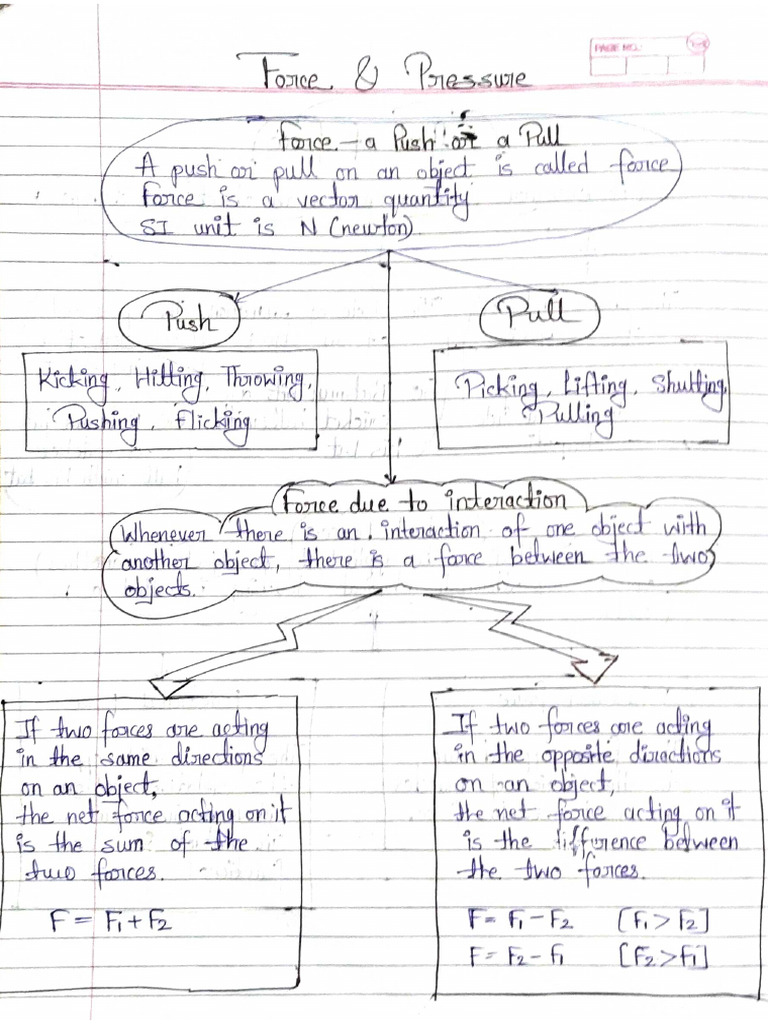 PAGE NO.:
Force & Pressure
Force - a Push or a Pull
A push or pull on an object is called force
Force is a vector quantity
SI unit is N (newton).
Push
Pull
Kicking, Hitting, Throwing,
Pushing, Flicking
Picking, Lifting, Shutting,
Pulling
Force due to interaction
Whenever there is an interaction of one object with
another object, there is a force between the two
objects.
If two forces are acting
in the same directions
on an object,
the net force acting on it
is the sum of the
two forces.
F = F₁ + F₂
If two forces are acting
in the opposite directions
on an object,
the net force acting on it
is the difference between
the two forces.
F = F₁ - F₂ [F₁ > F₂]
F = F₂ - F₁ [F₂ > F₁]